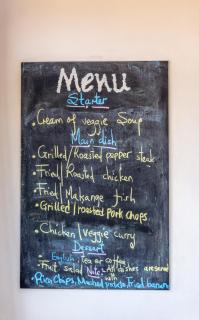 Menu
Starter
• Cream of veggie Soup
Main dish
• Grilled/Roasted pepper steak
• Fried/Roasted chicken
• Fried/Makange fish
• Grilled/roasted Pork chops
• Chicken/Veggie curry
Dessert
• English, tea or coffee
• Fruit salad Note: All dishes are served with
Rice, Chaps, Mashed potato, Fried banana